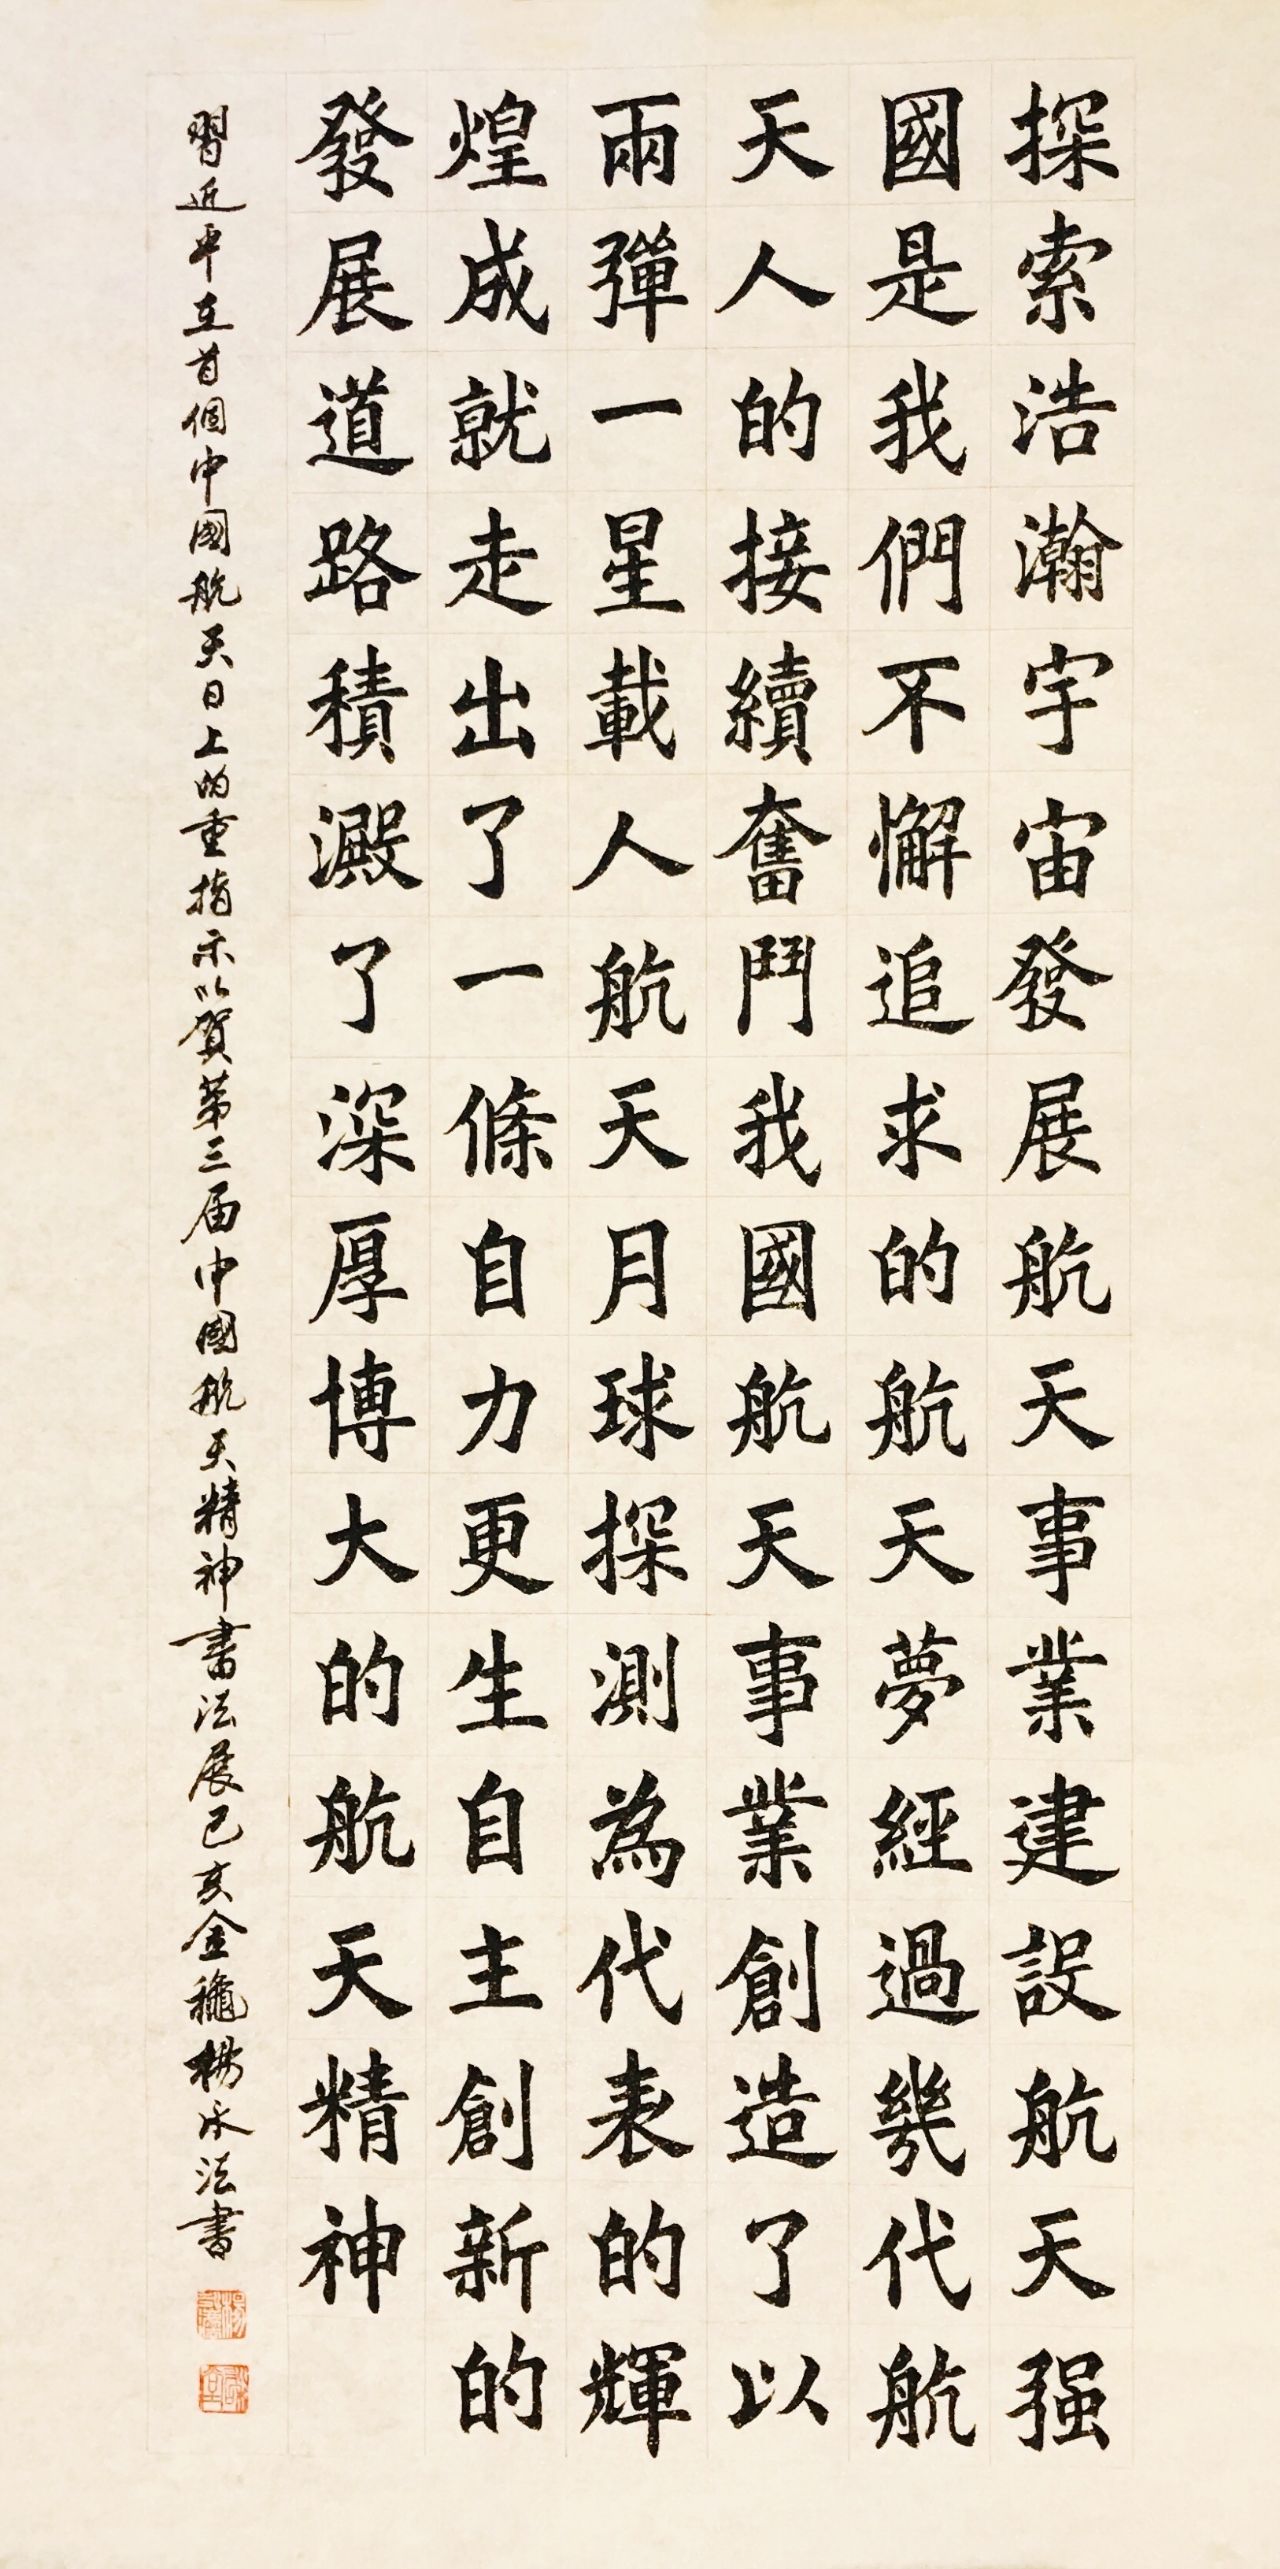 探索浩瀚宇宙發展航天事業建設航天强
國是我們不懈追求的航天夢經過幾代航
天人的接續奮鬥我國航天事業創造了以
兩彈一星載人航天月球探測為代表的輝
煌成就走出了一條自力更生自主創新的
發展道路積澱了深厚博大的航天精神
習近平在首個中國航天日上的重指示以賀第三届中國航天精神書法展己亥金龝楊永法書